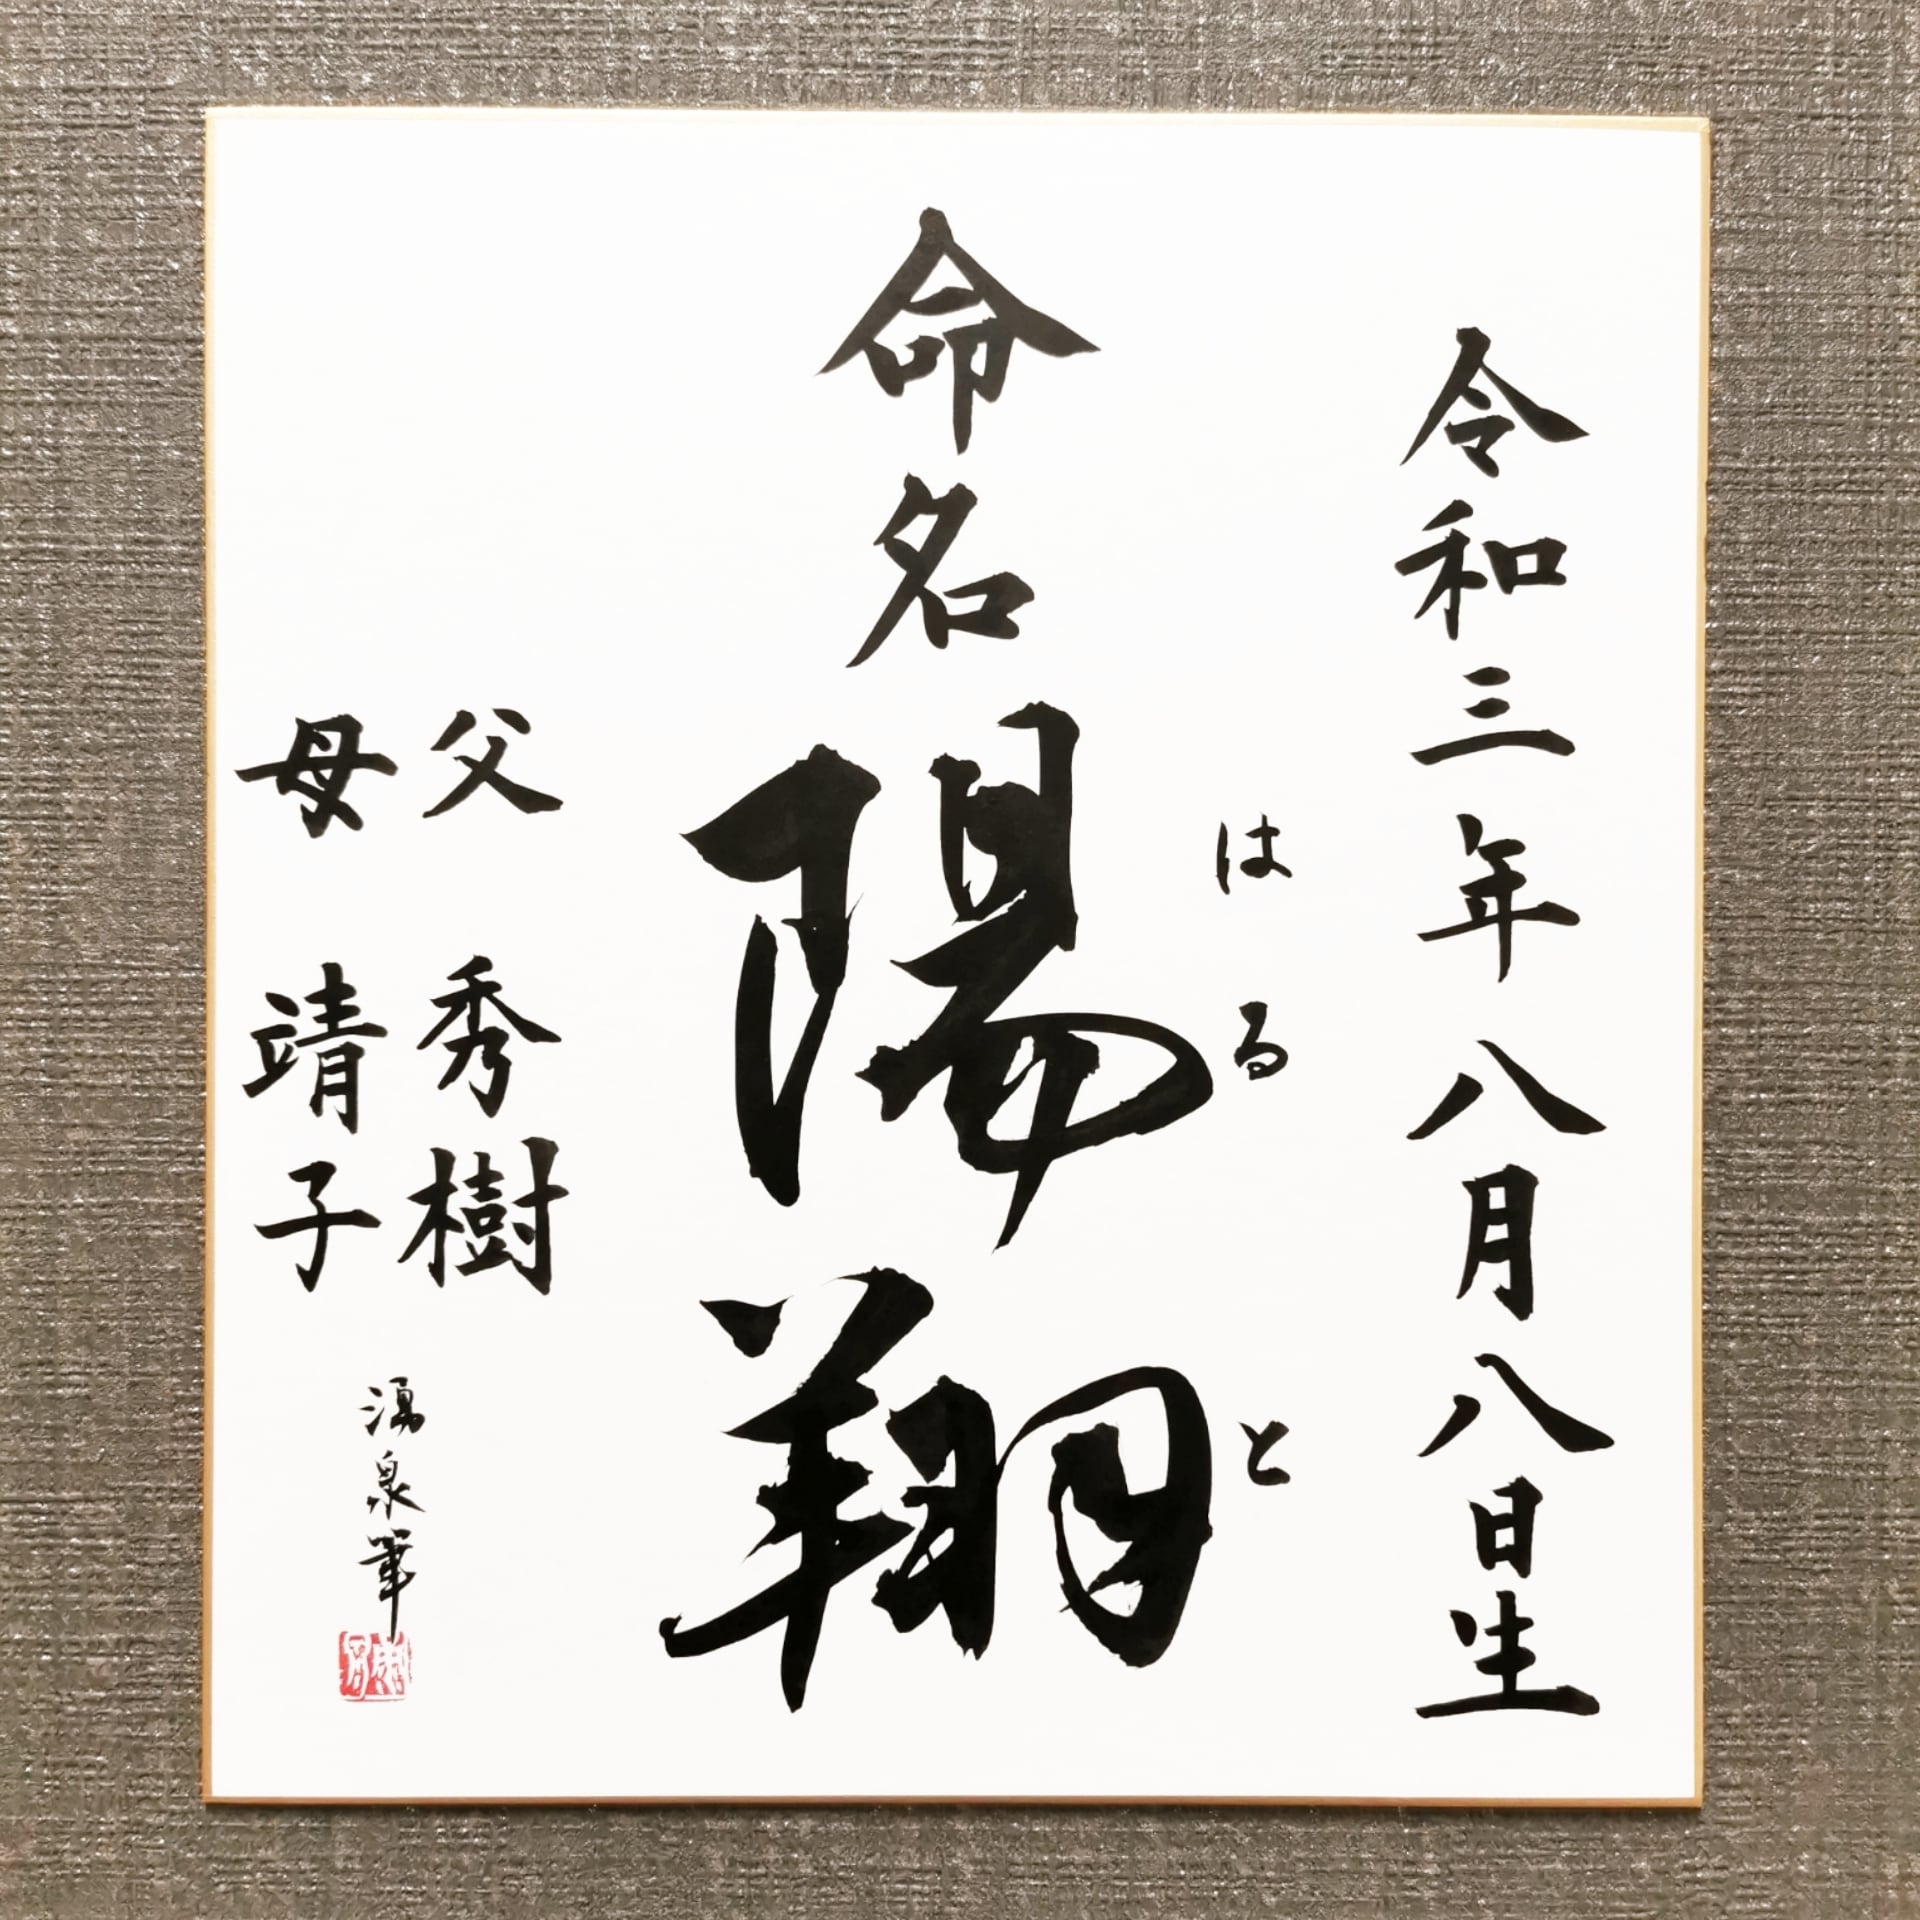 令和三年八月八日生
はると
命名 陽翔
父 秀樹
母 靖子
湧泉筆